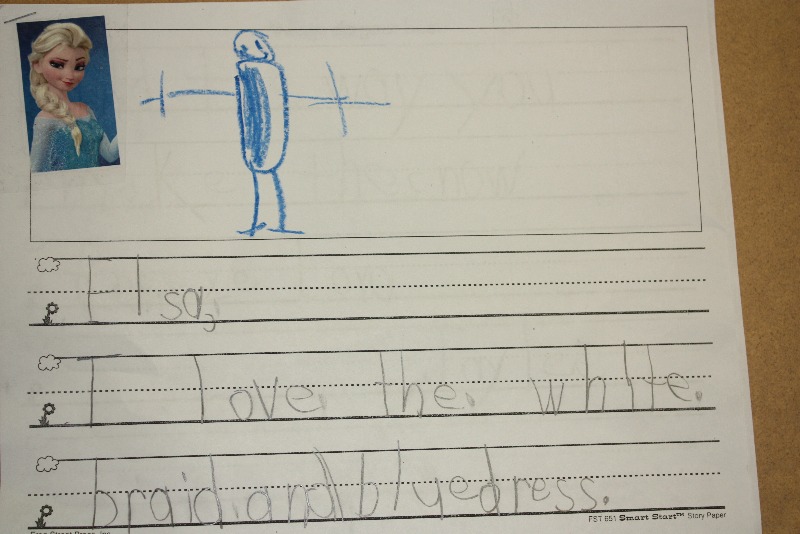 Elsa,
I love. the. white.
braid. and blue dress.
FST 651 Smart Start™ Story Paper